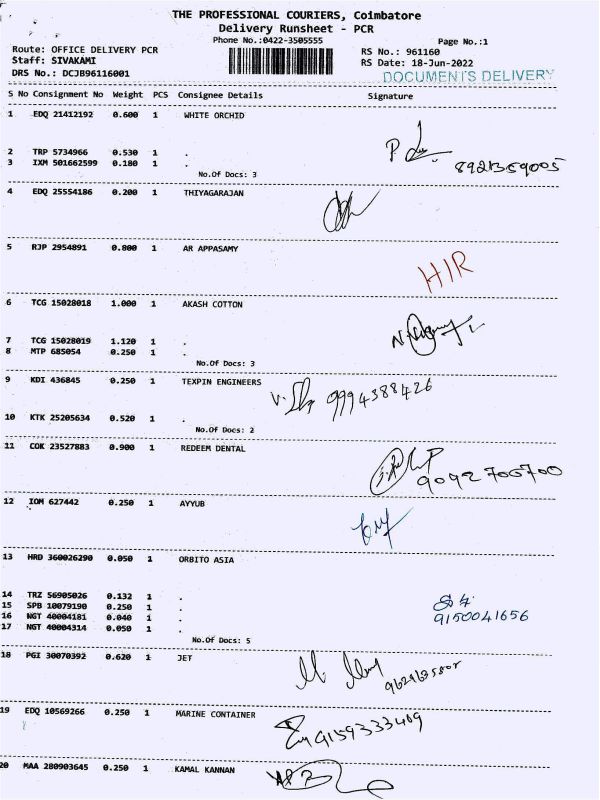 THE PROFESSIONAL COURIERS, Coimbatore
Delivery Runsheet - PCR
Phone No.:0422-3505555
Page No.:1
Route: OFFICE DELIVERY PCR
RS No.: 961160
Staff: SIVAKAMI
RS Date: 18-Jun-2022
DRS No.: DCJB96116001
DOCUMENTS DELIVERY
S No Consignment No Weight PCS Consignee Details Signature
1 EDQ 21412192 0.600 1 WHITE ORCHID
2 TRP 5734966 0.530 1 .
3 IXM 501662599 0.180 1 .
8921359005
No.Of Docs: 3
4 EDQ 25554186 0.200 1 THIYAGARAJAN
5 RJP 2954891 0.800 1 AR APPASAMY
HIR
6 TCG 15028018 1.000 1 AKASH COTTON
7 TCG 15028019 1.120 1 .
8 MTP 685054 0.250 1 .
No.Of Docs: 3
9 KDI 436845 0.250 1 TEXPIN ENGINEERS
9994388426
10 KTK 25205634 0.520 1 .
No.Of Docs: 2
11 COK 23527883 0.900 1 REDEEM DENTAL
9092700700
12 IOM 627442 0.250 1 AYYUB
13 HRD 360026290 0.050 1 ORBITO ASIA
14 TRZ 56905026 0.132 1 .
15 SPB 10079190 0.250 1 .
16 NGT 40004181 0.040 1 .
17 NGT 40004314 0.050 1 .
9150041656
No.Of Docs: 5
18 PGI 30070392 0.620 1 JET
19 EDQ 10569266 0.250 1 MARINE CONTAINER
9159333409
20 MAA 280903645 0.250 1 KAMAL KANNAN